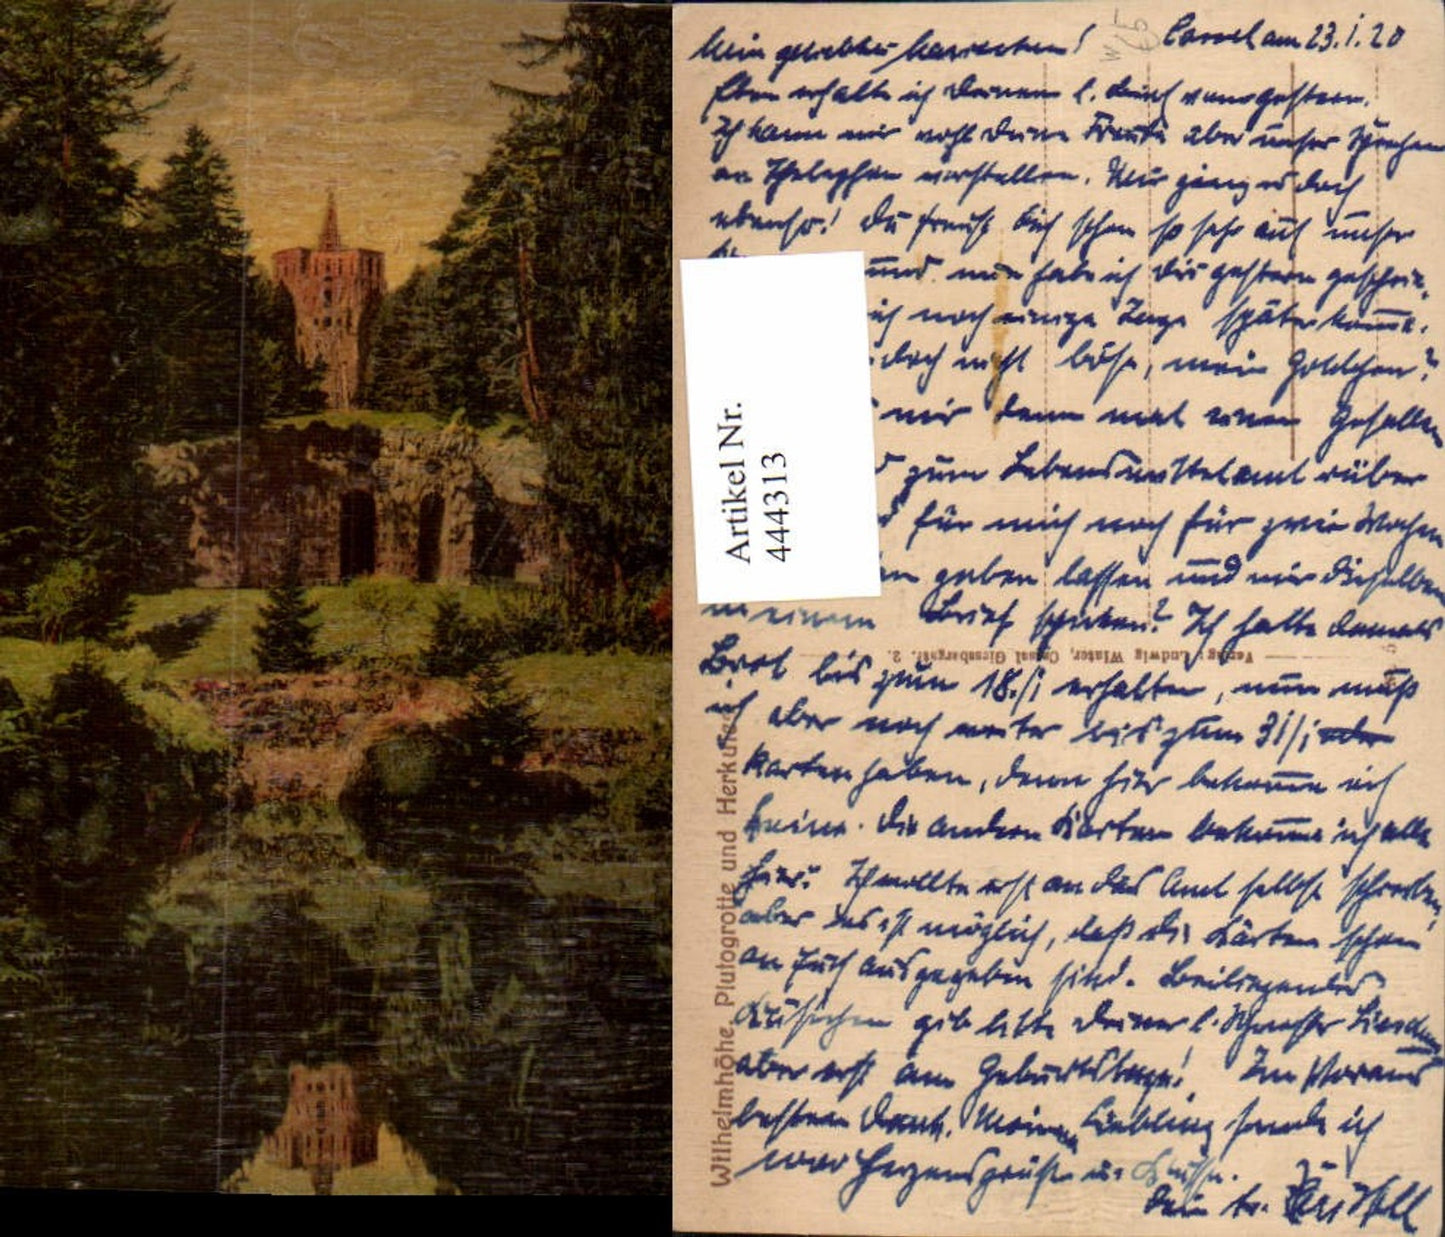 Cassel am 23.1.20
Mein geliebtes !
Eben erhalte ich Deinen l. Brief von gestern.
Ich kann mir wohl Deine Freude über unser Sprechen
am Thelephon vorstellen. Mir ging es doch
ebenso! Du freust Dich schon so sehr auf unser
und nun habe ich Dir gestern geschrie-
ich noch einige Tage später komme.
doch nicht böse, mein Goldchen?
mir denn mal einen Gefallen
zum Lebensmittelamt rüber
für mich noch für zwei Wochen
geben lassen und mir dieselben
in einem Brief schicken? Ich hatte damals
Brot bis zum 18./1 erhalten, nun muß
ich aber noch weiter bis zum 31/1
Karten haben, denn hier bekomme ich
keine. Die andern Karten bekomme ich alle
hier. Ich wollte erst an das Amt selbst schreiben,
aber es ist möglich, daß die Karten schon
an Euch ausgegeben sind. Beiliegendes
gib bitte Deiner l. Schwester
aber erst am Geburtstage! Im Voraus
besten Dank. Meinem Liebling sende ich
Herzensgrüße u. Küsse.
Dein tr.
Artikel Nr.
444313
Wilhelmhöhe, Plutogrotte und Herkules
Verlag: Ludwig Winter, Cassel Giessbergstr. 2.